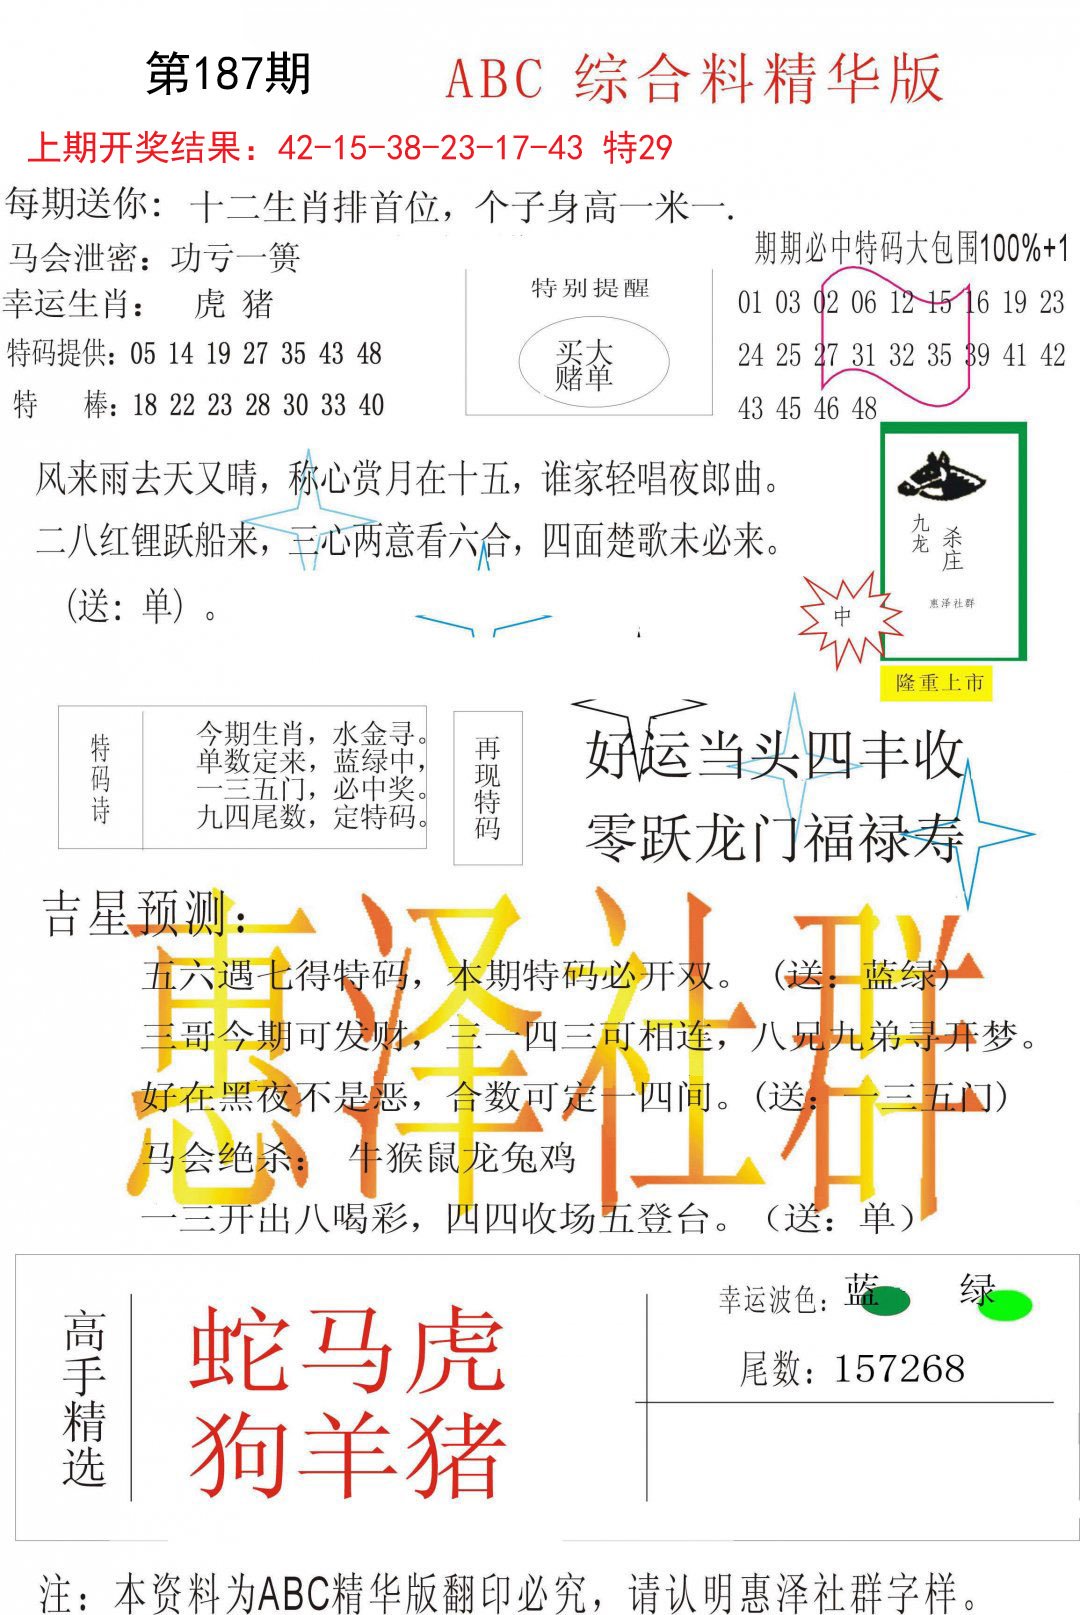 第187期
ABC 综合料精华版
上期开奖结果：42-15-38-23-17-43 特29
每期送你：十二生肖排首位，个子身高一米一.
马会泄密：功亏一篑
幸运生肖： 虎 猪
特码提供：05 14 19 27 35 43 48
特 棒：18 22 23 28 30 33 40
特别提醒
买大
赌单
期期必中特码大包围100%+1
01 03 02 06 12 15 16 19 23
24 25 27 31 32 35 39 41 42
43 45 46 48
风来雨去天又晴，称心赏月在十五，谁家轻唱夜郎曲。
二八红锂跃船来，三心两意看六合，四面楚歌未必来。
（送：单）。
九龙
杀庄
惠泽社群
中
隆重上市
特码诗
今期生肖，水金寻。
单数定来，蓝绿中，
一三五门，必中奖。
九四尾数，定特码。
再现特码
好运当头四丰收
零跃龙门福禄寿
吉星预测：
惠泽社群
五六遇七得特码，本期特码必开双。（送：蓝绿）
三哥今期可发财，三一四三可相连，八兄九弟寻开梦。
好在黑夜不是恶，合数可定一四间。(送：一三五门)
马会绝杀： 牛猴鼠龙兔鸡
一三开出八喝彩，四四收场五登台。（送：单）
高手精选
蛇马虎
狗羊猪
幸运波色：蓝 绿
尾数：157268
注：本资料为ABC精华版翻印必究，请认明惠泽社群字样。